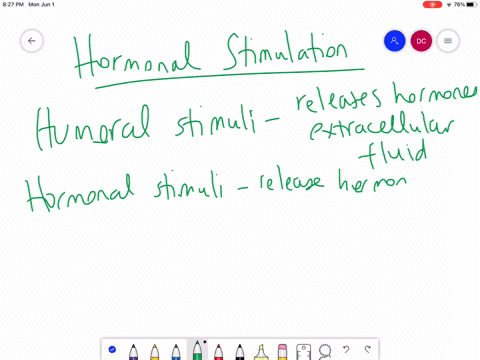 8:27 PM Mon Jun 1
76%
DC
Hormonal Stimulation
Humoral stimuli - releases hormones
extracellular
fluid
Hormonal stimuli - release hormon